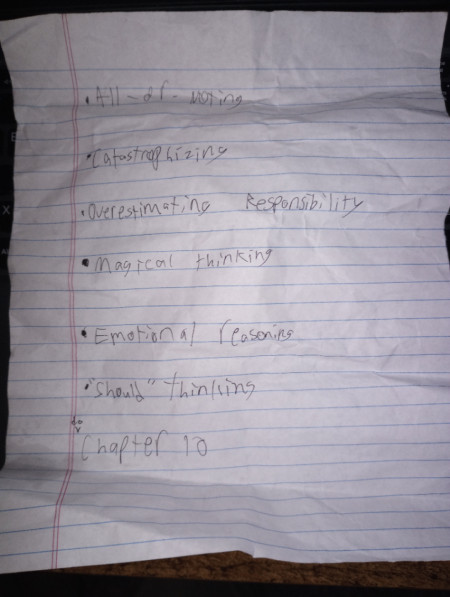 • All-or-noting
• Catastrophizing
• Overestimating Responsibility
• Magical thinking
• Emotional reasoning
• "Should" thinking
do
Chapter 10